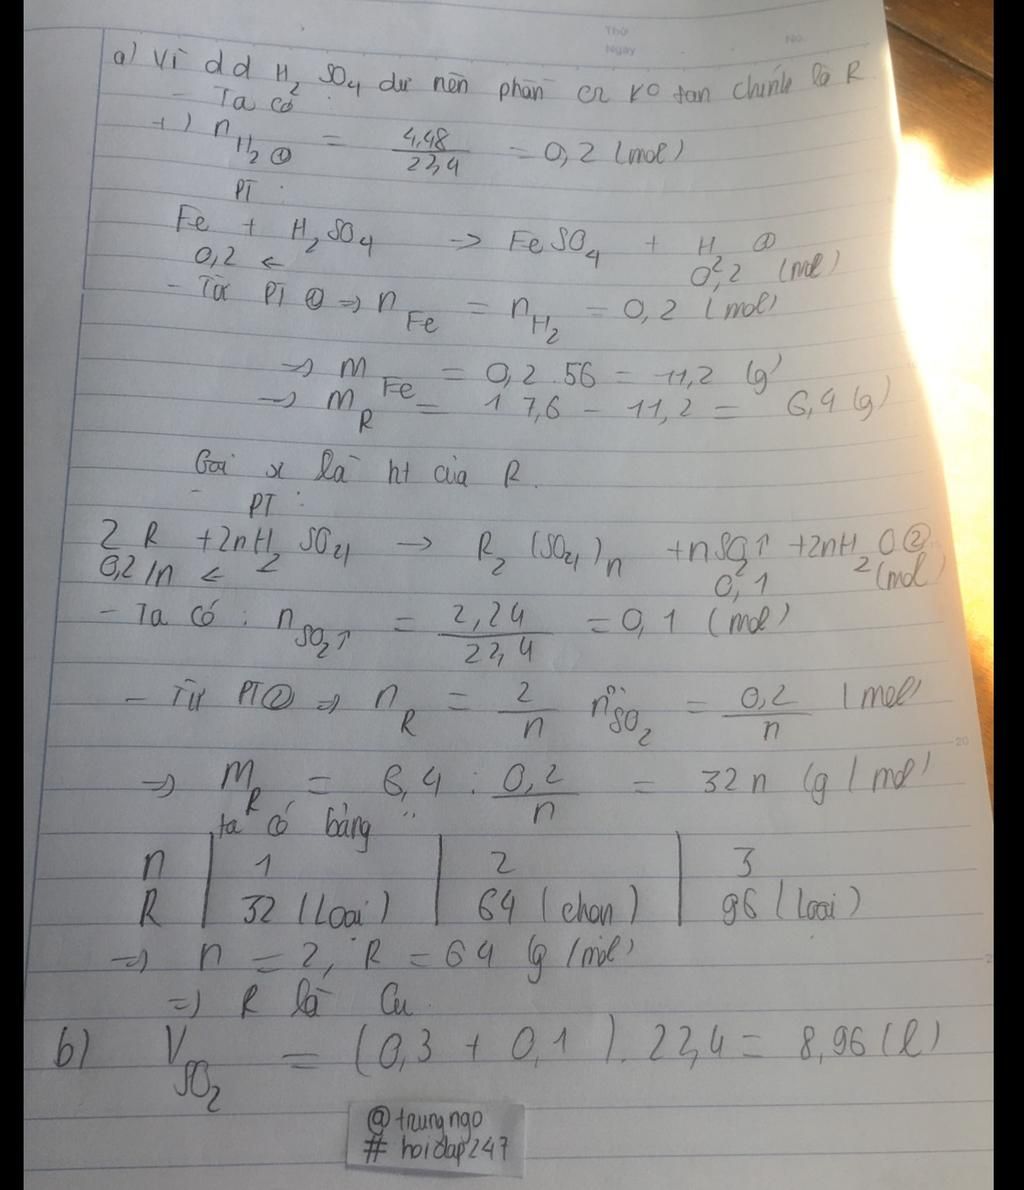 Thứ
Ngày No.
a) Vì dd H2SO4 dư nên phần cr ko tan chính là R
- Ta có :
+) nH2 ① = 4,48/22,4 = 0,2 (mol)
PT :
Fe + H2SO4 → FeSO4 + H2 ①
0,2 ← 0,2 (mol)
- Từ PT ① => nFe = nH2 = 0,2 (mol)
=> mFe = 0,2 . 56 = 11,2 (g)
=> mR = 17,6 - 11,2 = 6,4 (g)
Gọi x là ht của R.
PT :
2R + 2nH2SO4 → R2(SO4)n + nSO2↑ + 2nH2O ②
0,2/n ← 0,1 (mol)
- Ta có : nSO2↑ = 2,24/22,4 = 0,1 (mol)
- Từ PT② => nR = 2/n nSO2 = 0,2/n (mol)
20
=> MR = 6,4 : 0,2/n = 32n (g/mol)
ta có bảng :
n | 1 | 2 | 3
R | 32 (Loại) | 64 (chọn) | 96 (loại)
=> n = 2, R = 64 (g/mol)
=> R là Cu.
b) VSO2 = (0,3 + 0,1) . 22,4 = 8,96 (l)
@trungngo
# hoidap247